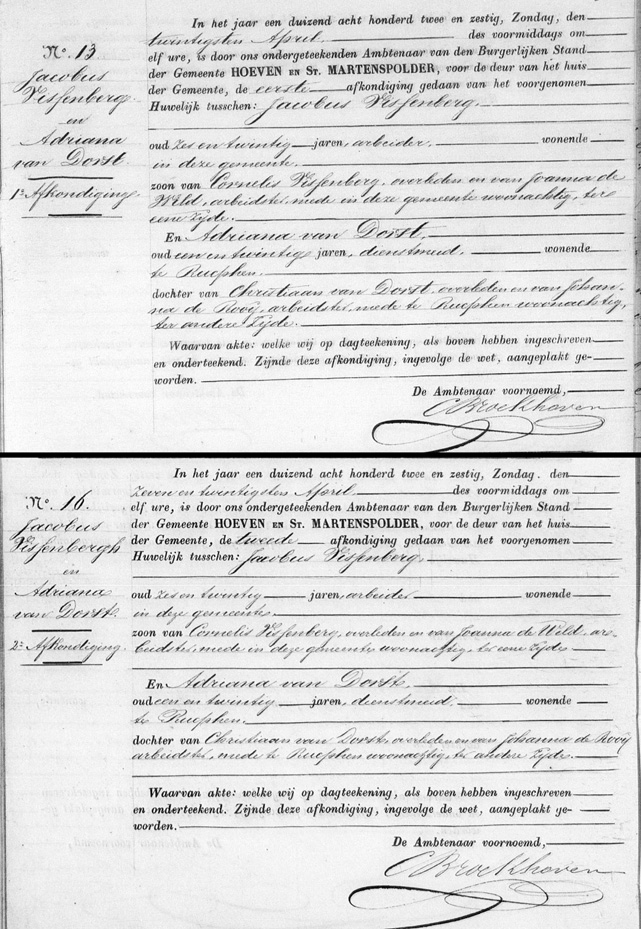 In het jaar een duizend acht honderd twee en zestig, Zondag, den
twintigsten April des voormiddags om
elf ure, is door ons ondergeteekenden Ambtenaar van den Burgerlijken Stand
der Gemeente HOEVEN EN ST. MARTENSPOLDER, voor de deur van het huis
der Gemeente, de eerste afkondiging gedaan van het voorgenomen
Huwelijk tusschen: Jacobus Vissenberg.
No. 13
Jacobus
Vissenberg
en
Adriana
van Dorst.
1e Afkondiging
oud zes en twintig jaren, arbeider wonende
in deze gemeente.
zoon van Cornelis Vissenberg, overleden en van Joanna de
Weld, arbeidster, mede in deze gemeente woonachtig, ter
eene zyde.
En Adriana van Dorst.
oud een en twintig jaren, dienstmeid. wonende
te Rucphen.
dochter van Christiaan van Dorst, overleden en van Johan-
na de Rooij, arbeidster, mede te Rucphen woonachtig,
ter andere Zyde.
Waarvan akte: welke wij op dagteekening, als boven hebben ingeschreven
en onderteekend. Zijnde deze afkondiging, ingevolge de wet, aangeplakt ge-
worden.
De Ambtenaar voornoemd,
CBroekhoven
In het jaar een duizend acht honderd twee en zestig, Zondag. den
zeven en twintigsten April. des voormiddags om
elf ure, is door ons ondergeteekenden Ambtenaar van den Burgerlijken Stand
der Gemeente HOEVEN EN ST. MARTENSPOLDER, voor de deur van het huis
der Gemeente, de tweede afkondiging gedaan van het voorgenomen
Huwelijk tusschen: Jacobus Vissenberg.
No. 16.
Jacobus
Vissenbergh
en
Adriana
van Dorst.
2e Afkondiging.
oud zes en twintig jaren, arbeider wonende
in deze gemeente.
zoon van Cornelis Vissenberg, overleden en van Joanna de Weld, ar-
beidster, mede in deze gemeente woonachtig, ter eene Zyde
En Adriana van Dorst.
oud een en twintig jaren, dienstmeid. wonende
te Rucphen.
dochter van Christiaan van Dorst, overleden en van Johanna de Rooij
arbeidster, mede te Rucphen woonachtig, ter andere Zyde.
Waarvan akte: welke wij op dagteekening, als boven hebben ingeschreven
en onderteekend. Zijnde deze afkondiging, ingevolge de wet, aangeplakt ge-
worden.
De Ambtenaar voornoemd,
CBroekhoven